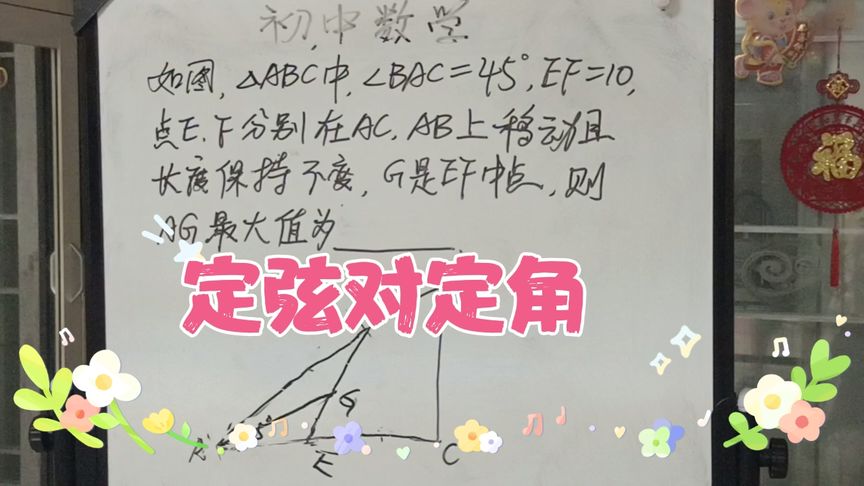 初中数学
如图,△ABC中,∠BAC=45°,EF=10,
点E、F分别在AC,AB上移动且
长度保持不变,G是EF中点,则
AG最大值为
定弦对定角
福
G
A
E
C